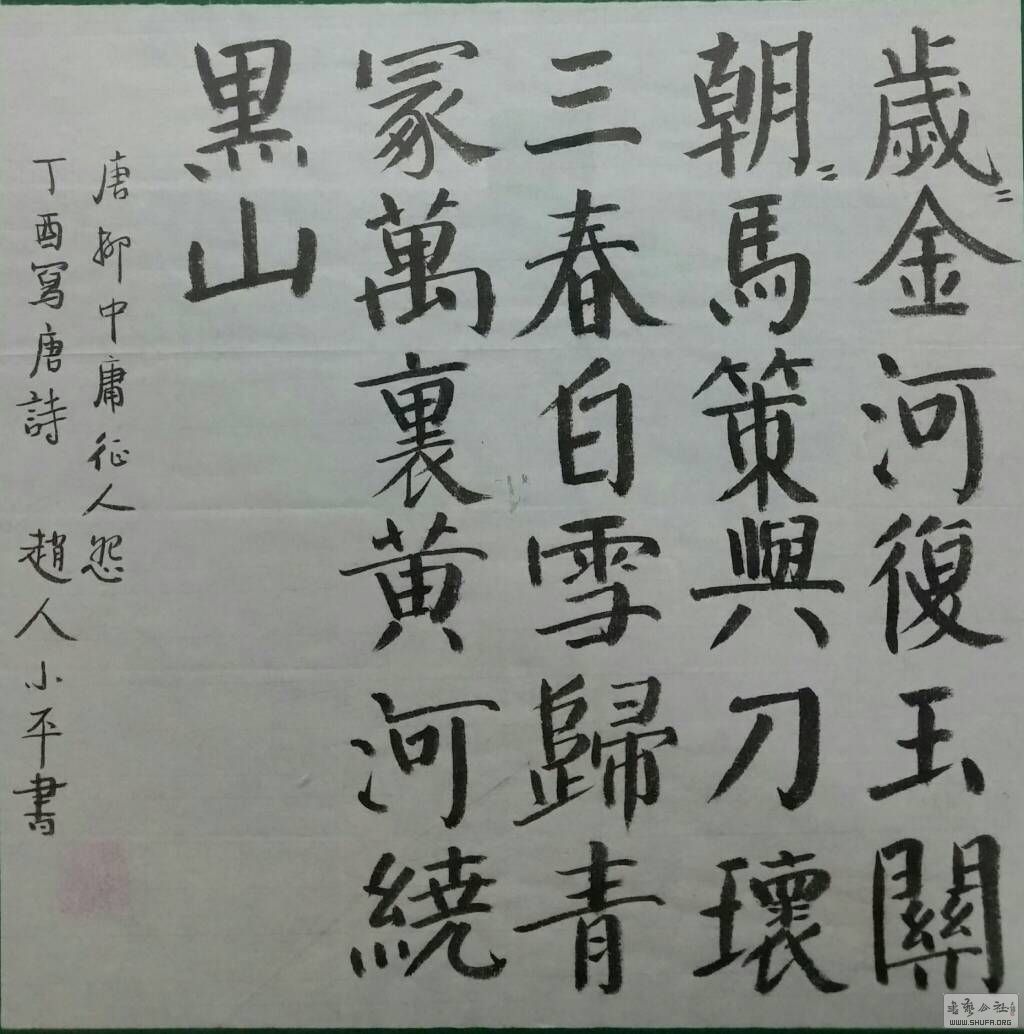 歲〻金河復玉關
朝〻馬策與刀瓌
三春白雪歸青
冢萬裏黄河繞
黑山
唐柳中庸征人怨
丁酉寫唐詩 趙人小平書
书藝公社
WWW.SHUFA.ORG